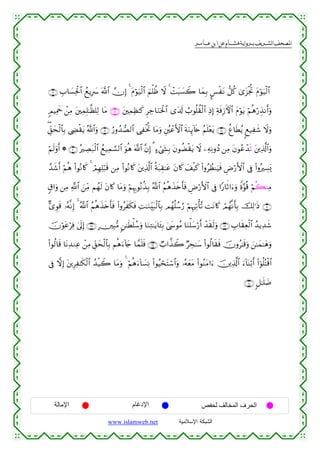 المصحف الشريف برواية هشام عن ابن عامر
ٱلۡيَوۡمَ تُجۡزَىٰ كُلُّ نَفۡسِۭ بِمَا كَسَبَتۡۚ لَا ظُلۡمَ ٱلۡيَوۡمَۚ إِنَّ ٱللَّهَ سَرِيعُ ٱلۡحِسَابِ
وَأَنذِرۡهُمۡ يَوۡمَ ٱلۡأٓزِفَةِ إِذِ ٱلۡقُلُوبُ لَدَى ٱلۡحَنَاجِرِ كَٰظِمِينَۚ مَا لِلظَّٰلِمِينَ مِنۡ حَمِيمٖ
وَلَا شَفِيعٖ يُطَاعُ يَعۡلَمُ خَآئِنَةَ ٱلۡأَعۡيُنِ وَمَا تُخۡفِي ٱلصُّدُورُ وَٱللَّهُ يَقۡضِي بِٱلۡحَقِّۖ
وَٱلَّذِينَ تَدۡعُونَ مِن دُونِهِۦ لَا يَقۡضُونَ بِشَيۡءٍۗ إِنَّ ٱللَّهَ هُوَ ٱلسَّمِيعُ ٱلۡبَصِيرُ ۞ أَوَلَمۡ
يَسِيرُواْ فِي ٱلۡأَرۡضِ فَيَنظُرُواْ كَيۡفَ كَانَ عَٰقِبَةُ ٱلَّذِينَ كَانُواْ مِن قَبۡلِهِمۡۚ كَانُواْ هُمۡ أَشَدَّ
مِنكُمۡ قُوَّةٗ وَءَاثَارٗا فِي ٱلۡأَرۡضِ فَأَخَذَهُمُ ٱللَّهُ بِذُنُوبِهِمۡ وَمَا كَانَ لَهُم مِّنَ ٱللَّهِ مِن وَاقٖ
ذَٰلِكَ بِأَنَّهُمۡ كَانَت تَّأۡتِيهِمۡ رُسُلُهُم بِٱلۡبَيِّنَٰتِ فَكَفَرُواْ فَأَخَذَهُمُ ٱللَّهُۚ إِنَّهُۥ قَوِيّٞ
شَدِيدُ ٱلۡعِقَابِ وَلَقَدۡ أَرۡسَلۡنَا مُوسَىٰ بِـَٔايَٰتِنَا وَسُلۡطَٰنٖ مُّبِينٍ إِلَىٰ فِرۡعَوۡنَ
وَهَٰمَٰنَ وَقَٰرُونَ فَقَالُواْ سَٰحِرٞ كَذَّابٞ فَلَمَّا جَآءَهُم بِٱلۡحَقِّ مِنۡ عِندِنَا قَالُواْ
ٱقۡتُلُوٓاْ أَبۡنَآءَ ٱلَّذِينَ ءَامَنُواْ مَعَهُۥ وَٱسۡتَحۡيُواْ نِسَآءَهُمۡۚ وَمَا كَيۡدُ ٱلۡكَٰفِرِينَ إِلَّا فِي
ضَلَٰلٖ
الحرف المخالف لحفص الإدغام الإمالة
www.islamweb.net الشبكة الإسلامية